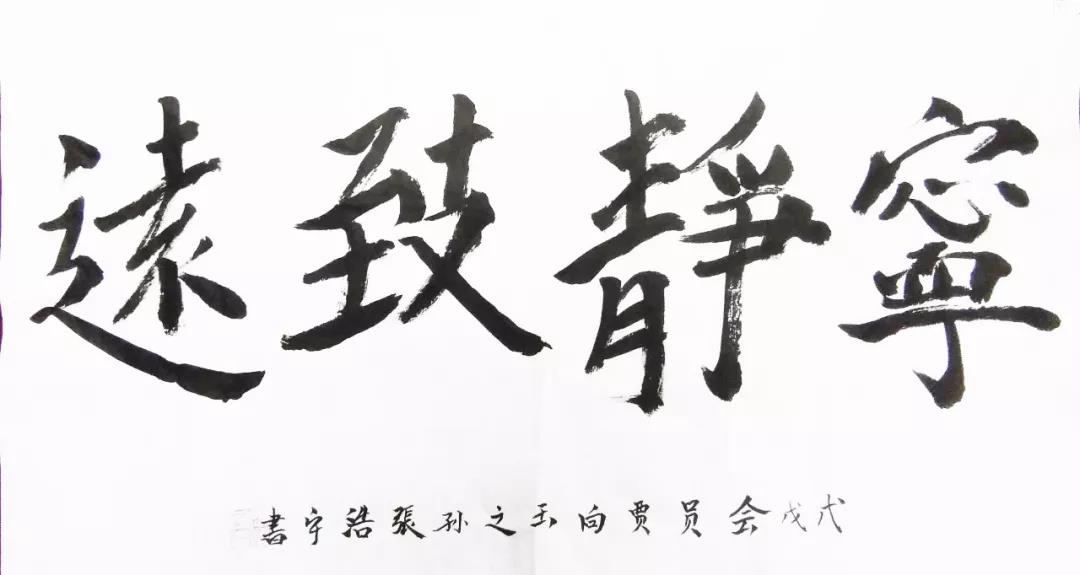 寧靜致遠
戊戌会员贾向玉之孙張浩宇書